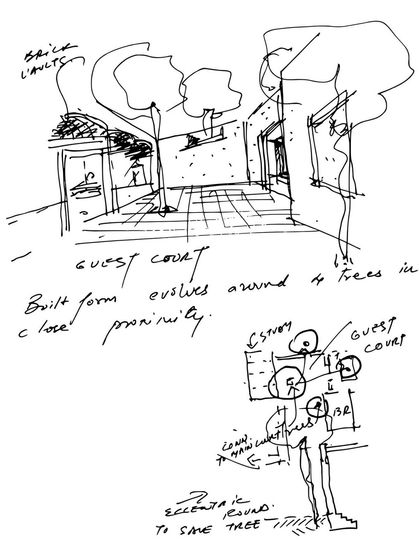 BRICK
VAULTS.
GUEST COURT
Built form evolves around 4 trees in
close proximity.
STUDY
GUEST
COURT
BR
CONN.
TO MAIN COURT
trees
ECCENTRIC
ROUND
TO SAVE TREE